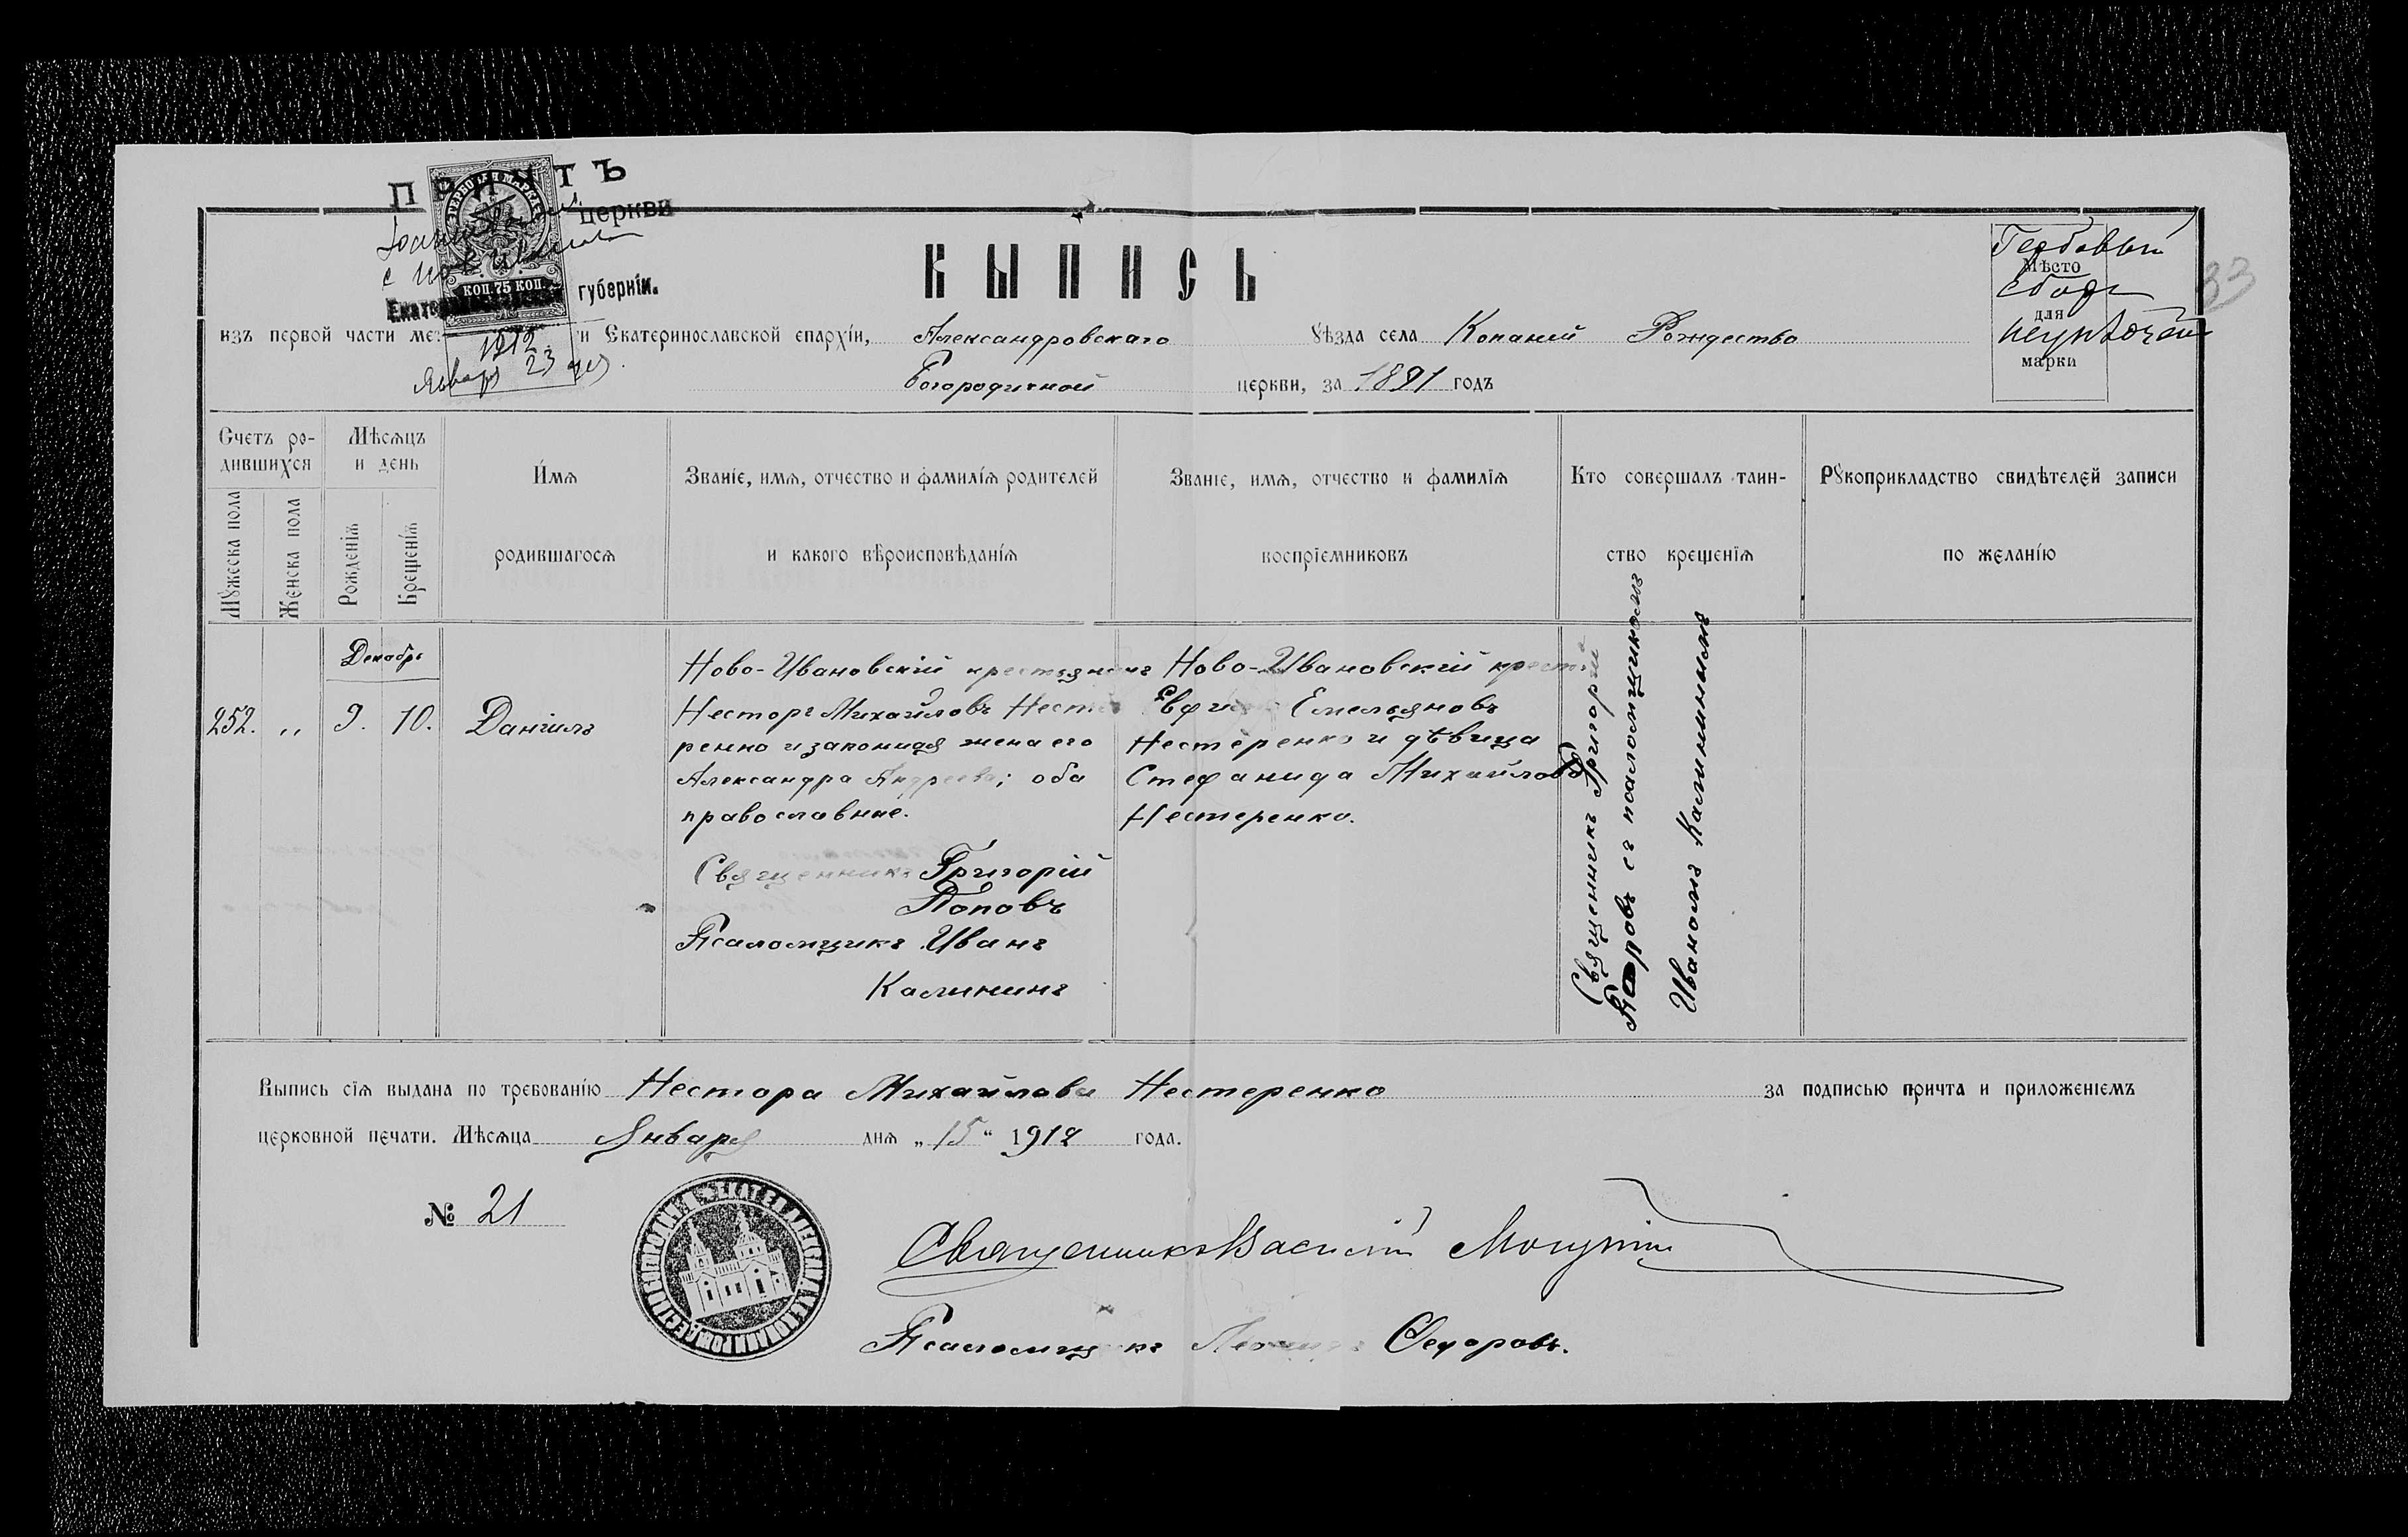 ПРИЧТЪ
церкви
с.
губерніи.
КОП. 75 КОП.
1912
Января 23 дня
ВЫПИСЬ
Гербовый
Мѣсто
сборъ
для
марки
33
изъ первой части ме и Екатеринославской епархіи, Александровскаго уѣзда села Копаней Рождество
Богородичной церкви, за 1891 годъ
Счетъ ро-
дившихся
Мужеска пола
Женска пола
Мѣсяцъ
и день
Рожденія
Крещенія
Имя
родившагося
Званіе, имя, отчество и фамилія родителей
и какого вѣроисповѣданія
Званіе, имя, отчество и фамилія
воспріемниковъ
Кто совершалъ таин-
ство крещенія
Рукоприкладство свидѣтелей записи
по желанію
Декабрь
252. „ 9. 10. Даніилъ
Ново-Ивановскій крестьянинъ
Несторъ Михайловъ Несте
ренко и законная жена его
Александра Андреева; оба
православные.
Священникъ Григорій
Поповъ
Псаломщикъ Иванъ
Калининъ
Ново-Ивановскій крестья
Емельяновъ
Нестеренко и дѣвица
Стефанида Михайлова
Нестеренко.
Священникъ Григорій
Поповъ съ псаломщикомъ
Иваномъ Калининымъ
Выпись сія выдана по требованію Нестора Михайлова Нестеренко за подписью причта и приложеніемъ
церковной печати. Мѣсяца Января дня „15“ 1912 года.
№ 21
Священникъ Василій
Псаломщикъ Федоровъ.